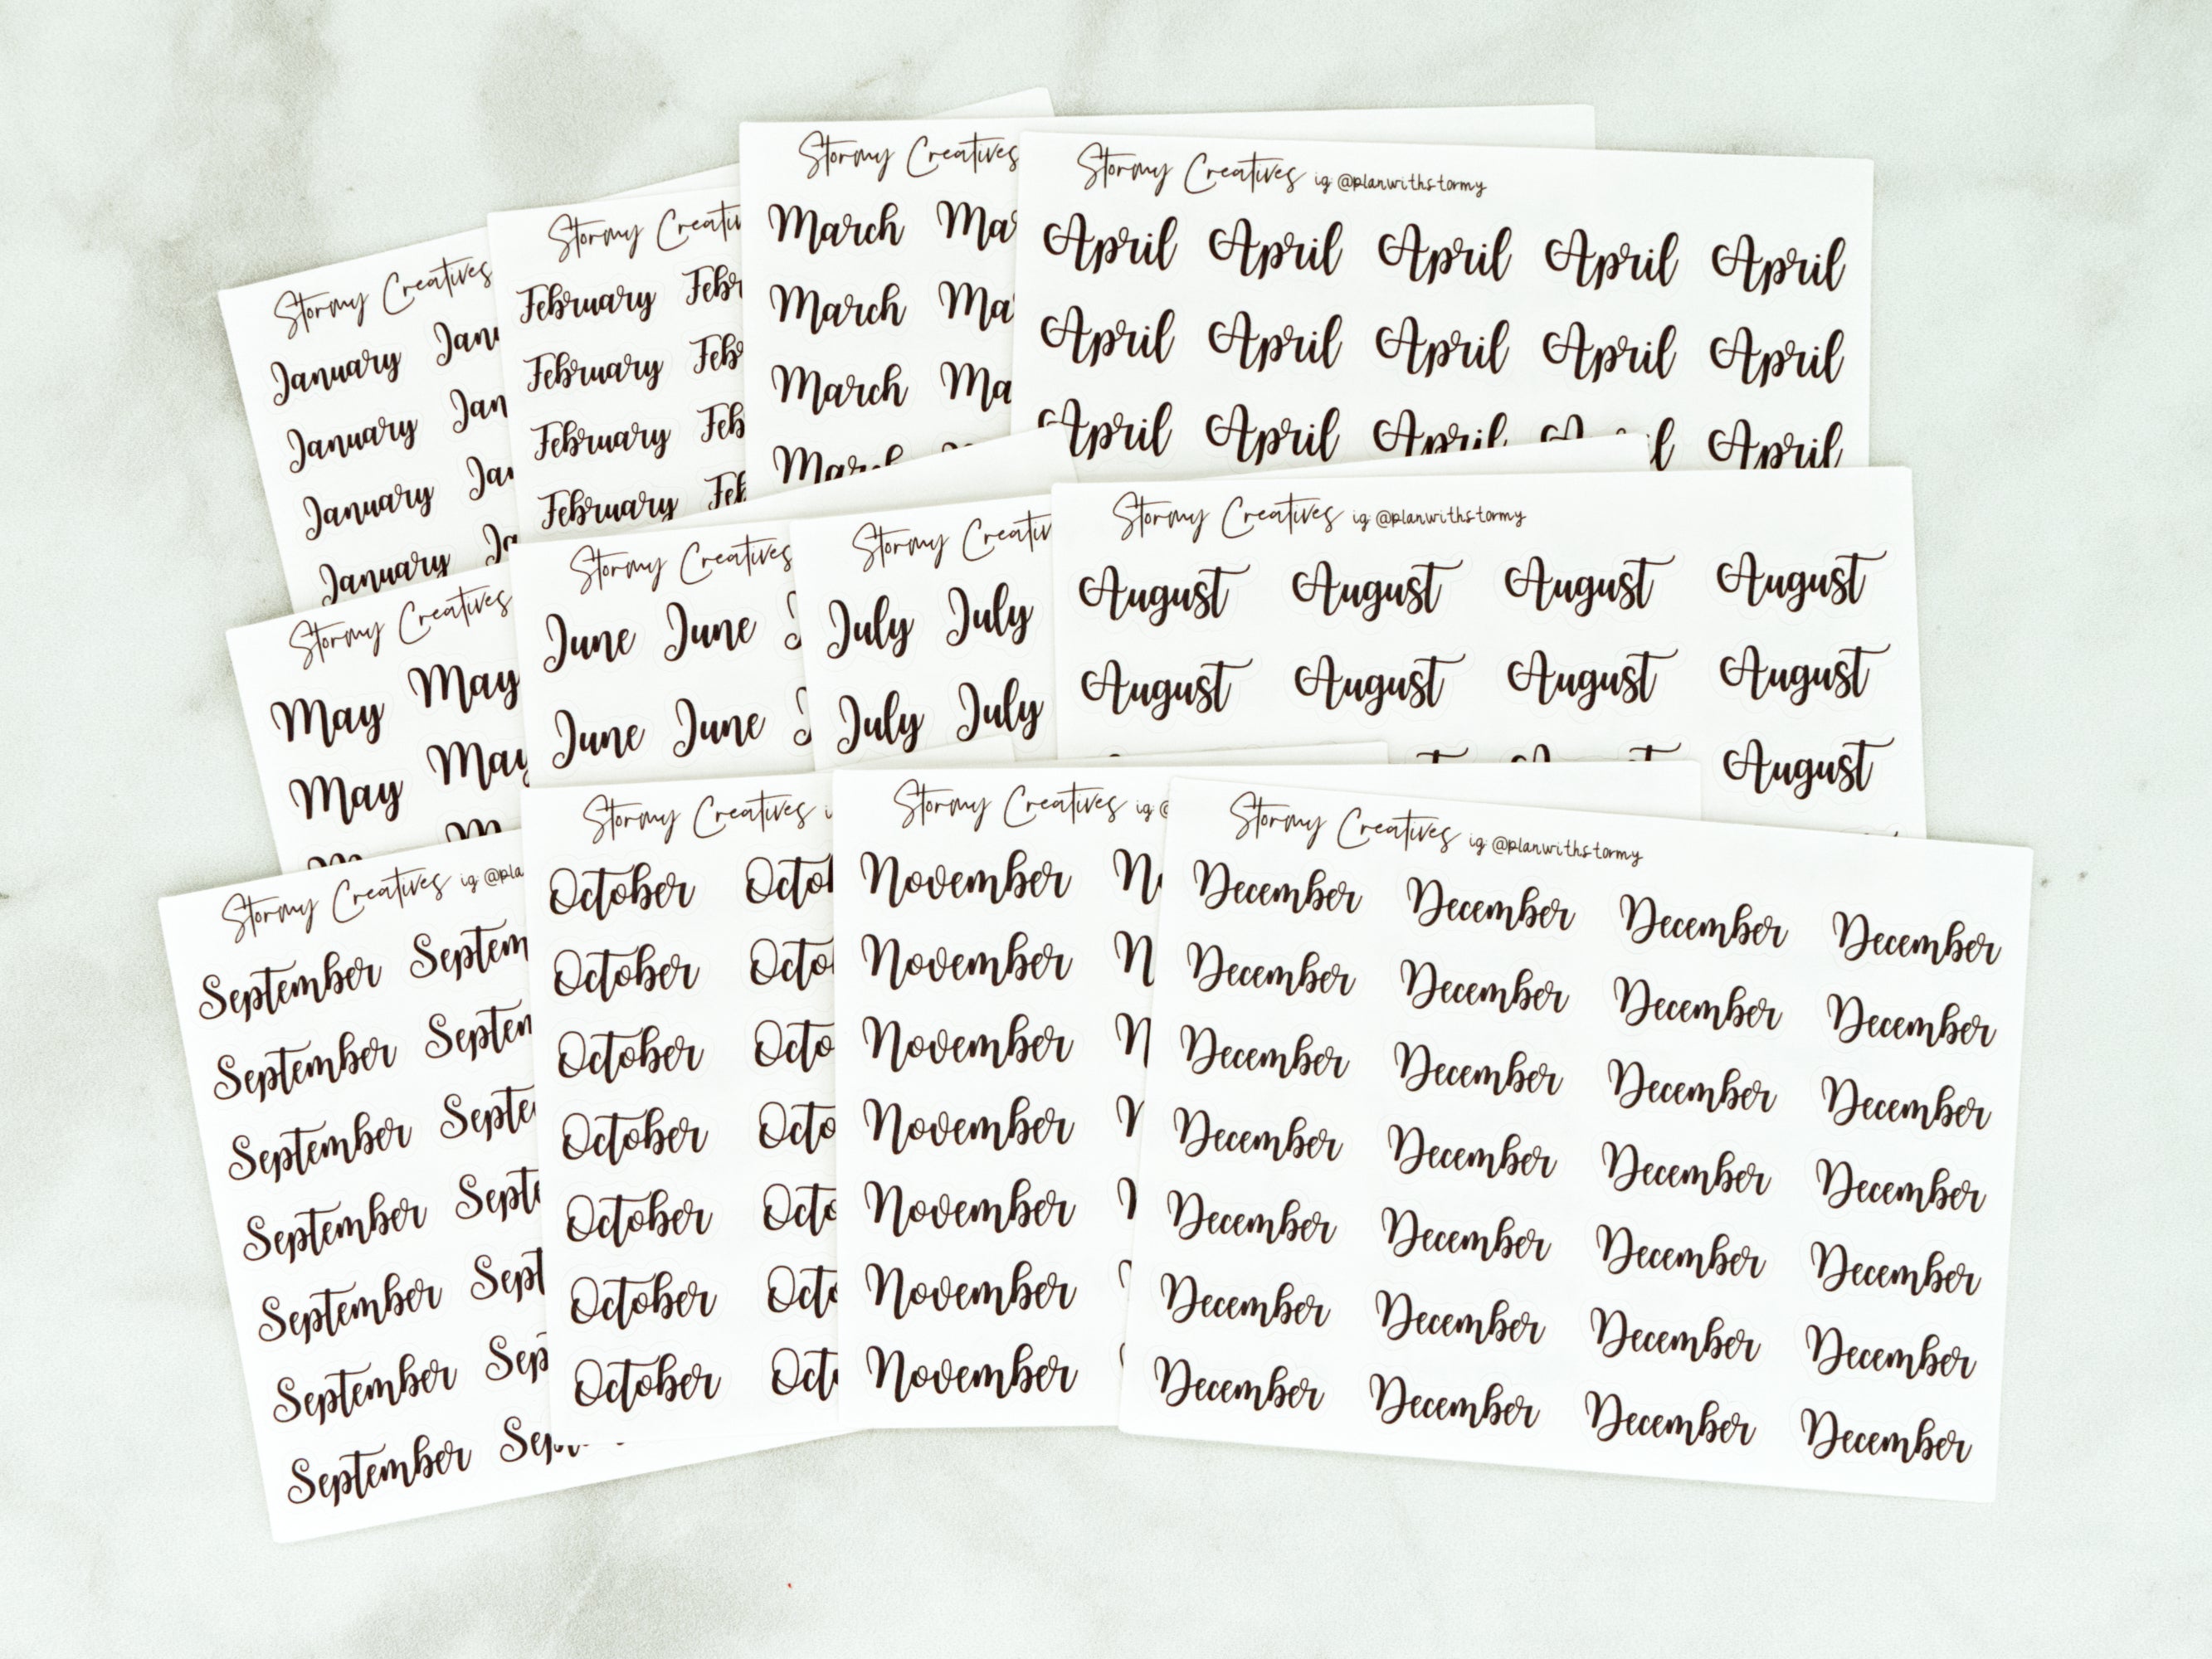 Stormy Creatives
January
January
January
January
Stormy Creatives
February
February
February
February
Stormy Creatives
March
March
March
March
Stormy Creatives ig @planwithstormy
April April April April April
April April April April April
April April April April
Stormy Creatives
May May
May May
Stormy Creatives
June June
June June
Stormy Creatives
July July
July July
Stormy Creatives ig @planwithstormy
August August August August
August August August August
August
Stormy Creatives ig
September
September
September
September
September
September
September
Stormy Creatives
October
October
October
October
October
October
October
Stormy Creatives ig
November
November
November
November
November
November
November
Stormy Creatives ig @planwithstormy
December December December December
December December December December
December December December December
December December December December
December December December December
December December December December
December December December December